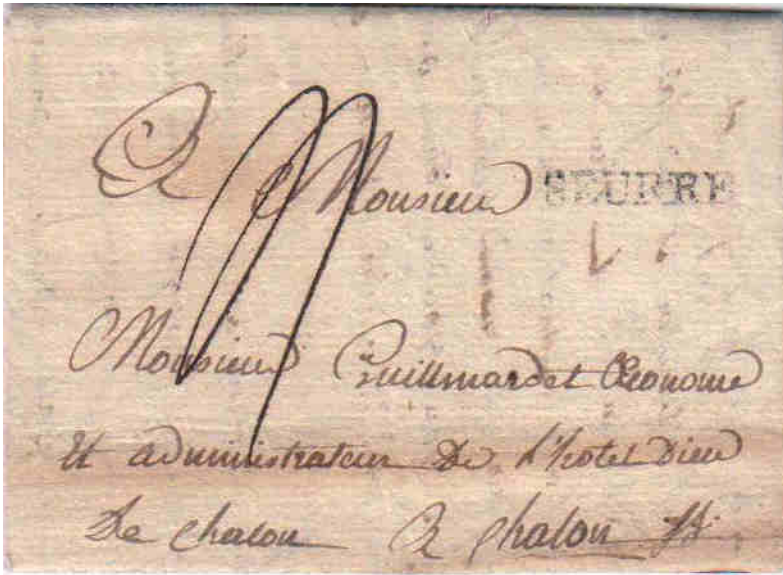 A Monsieur SEURRE
Monsieur Guillmardet Œconome
et administrateur De l'hotel Dieu
De chalon A chalon